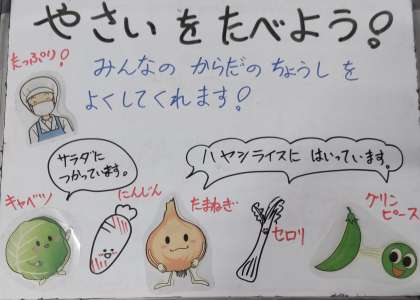 やさいをたべよう!
たっぷり!
みんなの からだの ちょうしを
よくしてくれます!
サラダに
つかっています。
ハヤシライスに はいっています。
キャベツ
にんじん
たまねぎ
セロリ
グリン
ピース